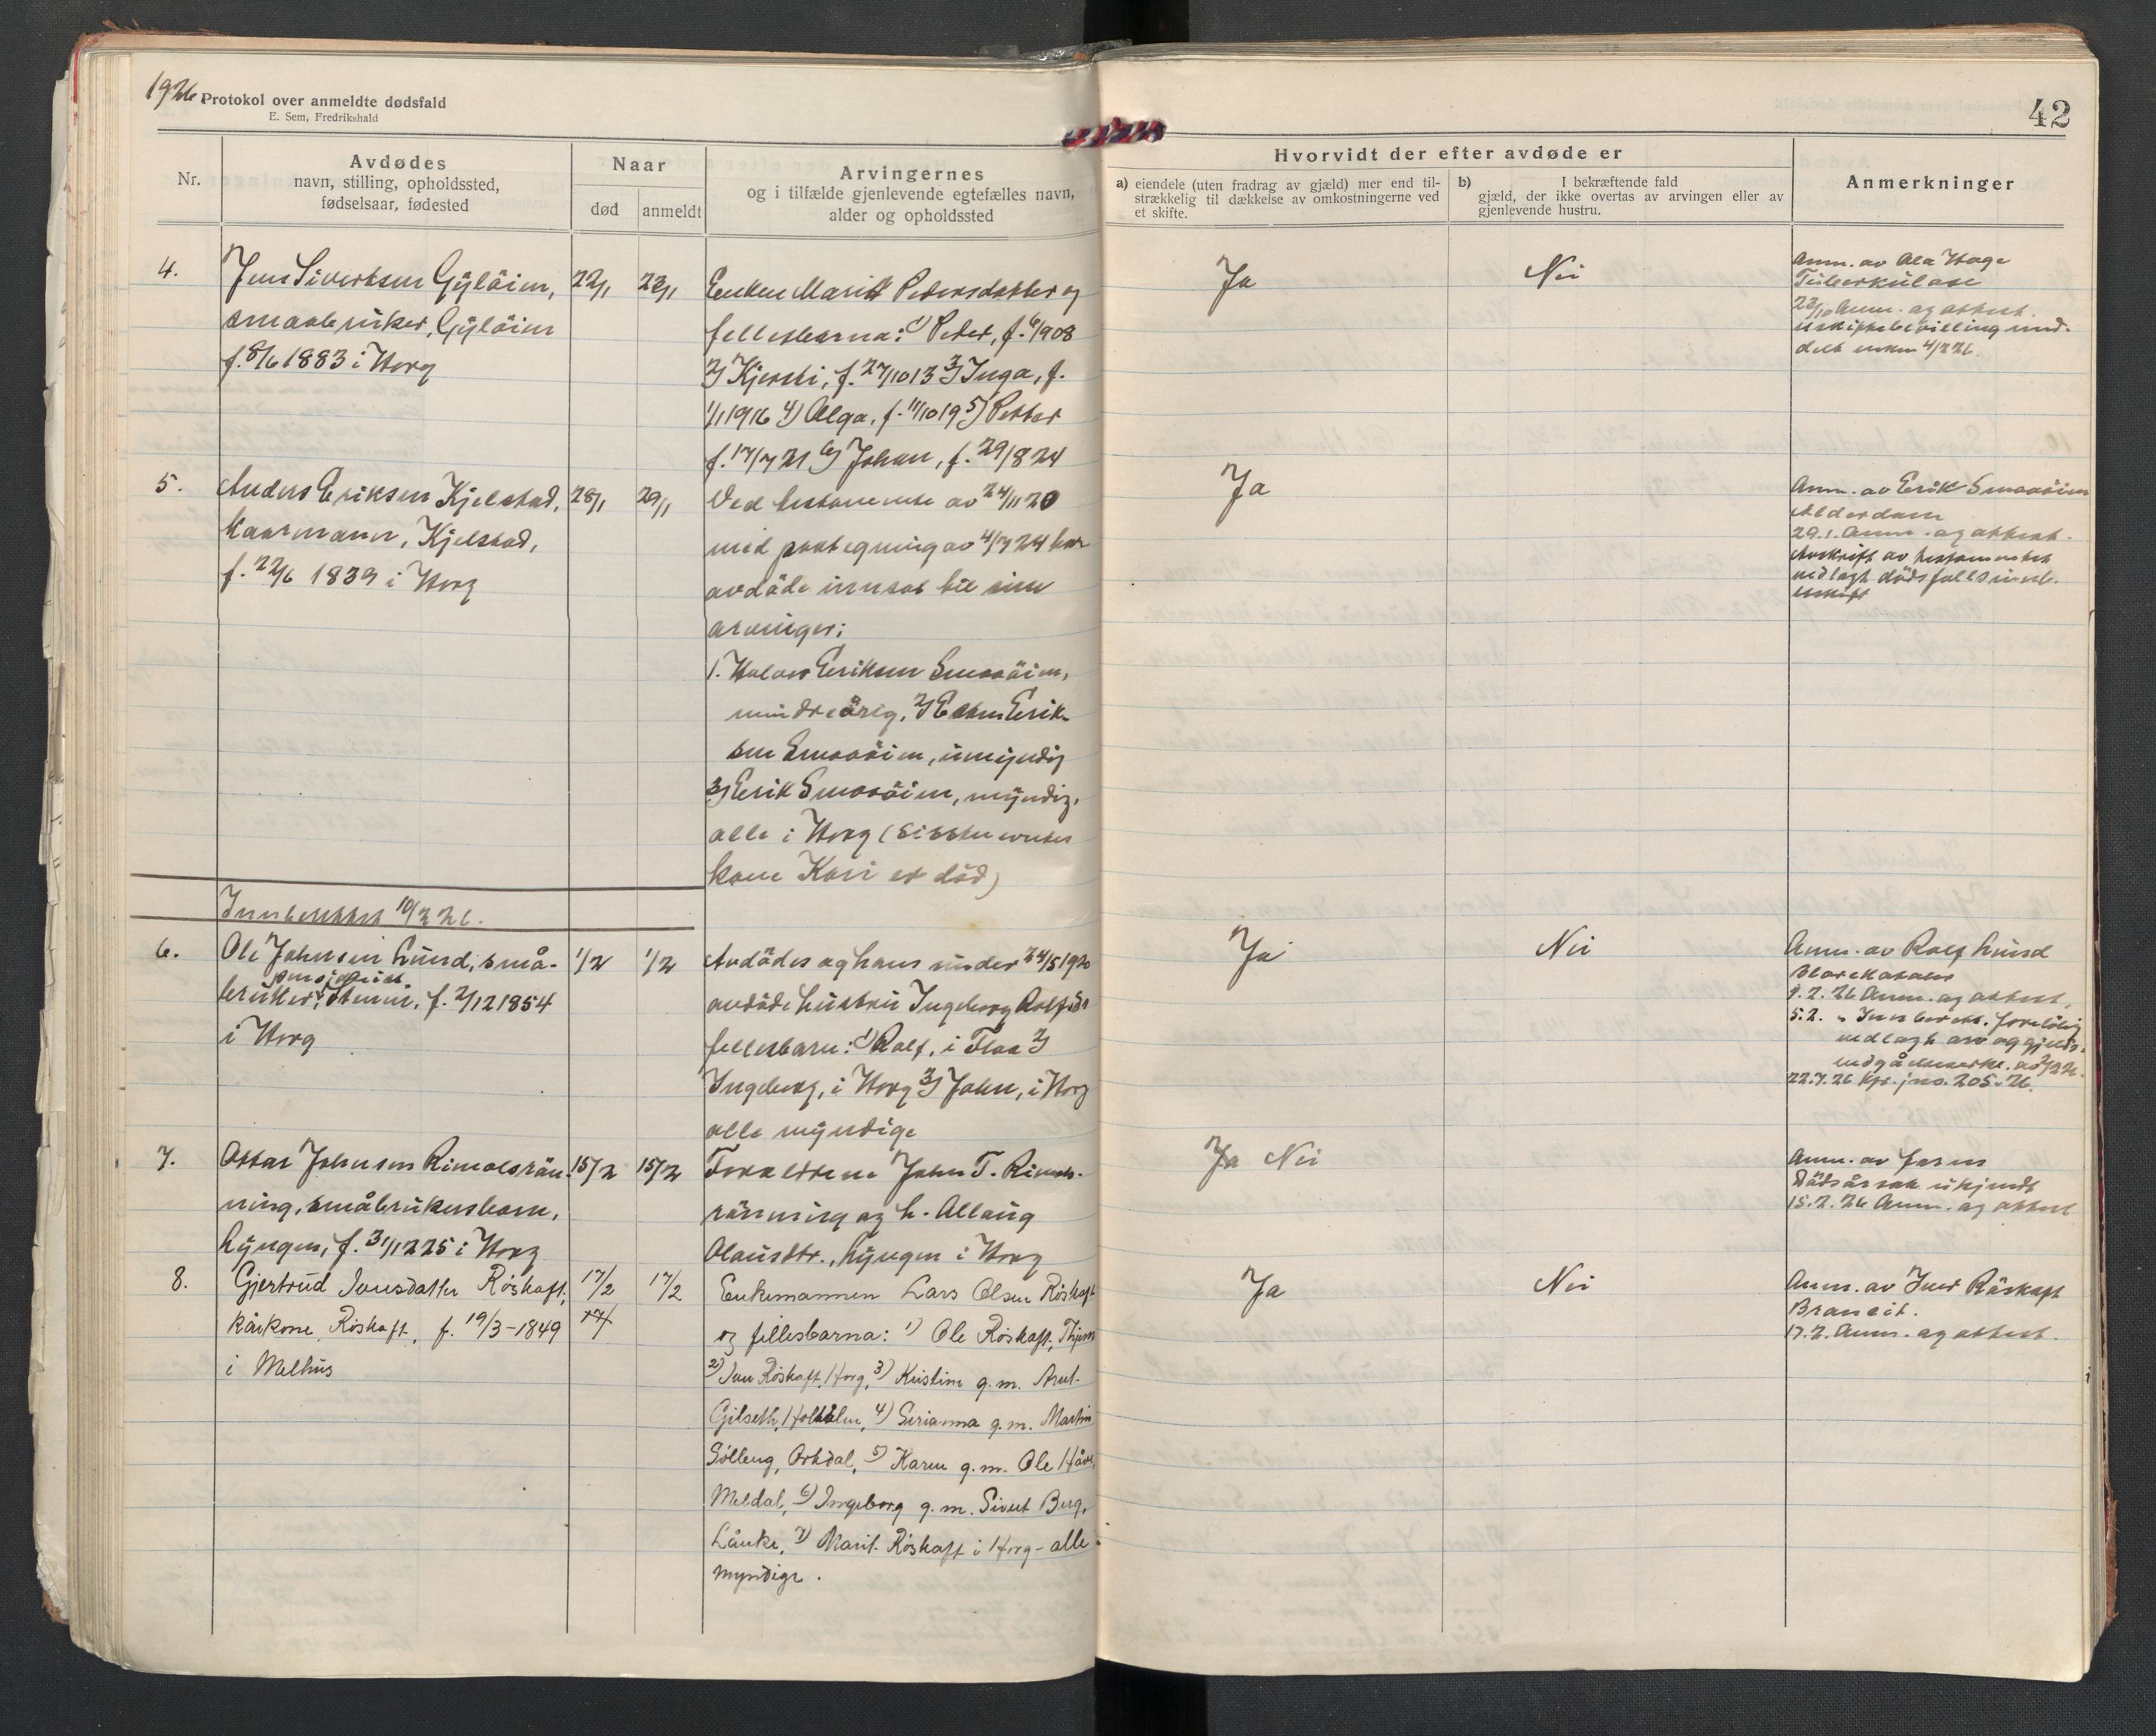 1926.
Protokol over anmeldte dødsfald
E. Sem, Fredrikshald
42
Nr.
Avdødes
navn, stilling, opholdssted,
fødselsaar, fødested
Naar
død
anmeldt
Arvingernes
og i tilfælde gjenlevende egtefælles navn,
alder og opholdssted
Hvorvidt der efter avdøde er
a) eiendele (uten fradrag av gjæld) mer end til-
strækkelig til dækkelse av omkostningerne ved
et skifte.
b) I bekræftende fald
gjæld, der ikke overtas av arvingen eller av
gjenlevende hustru.
Anmerkninger
4.
Jens Sivertsen Gylöim,
smaabruker, Gylöim
f. 8/6 1883 i Horg
22/1
23/1
Enken Marit Pedersdatter og
fellesbarna: 1) Peder, f. 6/908
2) Kjersti, f. 27/10 13 3) Inga, f.
1/1 1916 4) Olga, f. 11/10 19 5) Petter
f. 17/7 21 6) Johan, f. 29/8 24
Ja
Nei
Anm. av Ola Hage
Tuberkulose
23/10 Anm. og attest.
uskiftebevilling med-
delt enken 4/2 26.
5.
Anders Eriksen Kjelstad,
kaarmann, Kjelstad,
f. 22/6 1839 i Horg
28/1
29/1
Ved testamente av 24/11 20
med paategning av 4/7 24 har
avdöde innsat til sine
arvinger:
1. Halvor Eriksen Smaaöim,
mindreårig, 2) Esten Erik-
sen Smaaöim, umyndig
3) Erik Smaaöim, myndig,
alle i Horg (Sistnevntes
kone Kari er död)
Ja
Anm. av Erik Smaaöim
Alderdom
29.1. Anm. og attest.
Avskrift av testamentet
vedlagt dödsfallsinnb.
Innberettet 10/2 26.
6.
Ole Johnsen Lund, små-
bruker, Stenm, f. 2/12 1854
i Horg
1/2
1/2
Avdödes og hans under 24/5 1920
avdöde hustru Ingeborg Rolfsdr
fellesbarn: 1) Rolf, i Flaa 2)
Ingeborg, i Horg 3) John, i Horg
alle myndige
Ja
Nei
Anm. av Rolf Lund
1.2.26 Anm. og attest.
5.2. " Innberett. foreløbig
vedlagt arv og gjelds-
22.7.26 Kfr. jno. 205.26.
7.
Ottar Johnsen Rimolsrön-
ning, småbrukersbarn,
Lyngen, f. 31/12 25 i Horg
15/2
15/2
Foreldrene John T. Rimols-
rönning og h. Allaug
Olausdtr., Lyngen i Horg
Ja Nei
Anm. av faren
Dödsårsak ukjendt
15.2.26 Anm. og attest
8.
Gjertrud Ionsdatter Röskaft,
kårkone, Röskaft, f. 19/3-1849
i Melhus
17/2
17/
17/2
Enkemannen Lars Olsen Röskaft
og fellesbarna: 1) Ole Röskaft, Thjem
2) Ion Röskaft, Horg, 3) Kristine g.m. Arnt
Gilseth, Holtålen, 4) Serianna g.m. Martin
Sölleng, Orkdal, 5) Karen g.m. Ole Håve,
Meldal, 6) Ingeborg g.m. Sivert Berg,
Lånke, 7) Marit Röskaft i Horg - alle
myndige.
Ja
Nei
Anm. av Iver Röskaft
Brancit.
17.2. Anm. og attest.